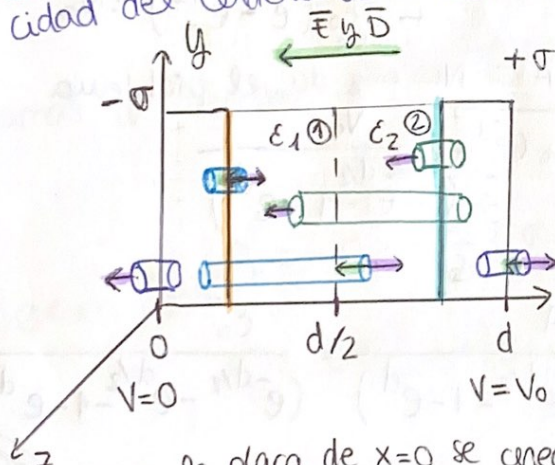 cidad del
E̅ y D̅
y
+σ
-σ
ε₁ ① ε₂ ②
0 d/2 d
V=0 V=V₀
z
placa de x=0 se